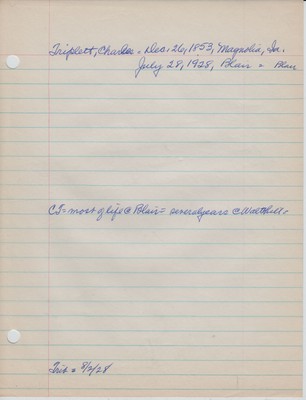 Triplett, Charles - Dec. 26, 1853, Magnolia, Ia.
July 28, 1928, Blair - Blair
CT = most of life @ Blair = several years @ Walthill.
Trib = 8/2/28